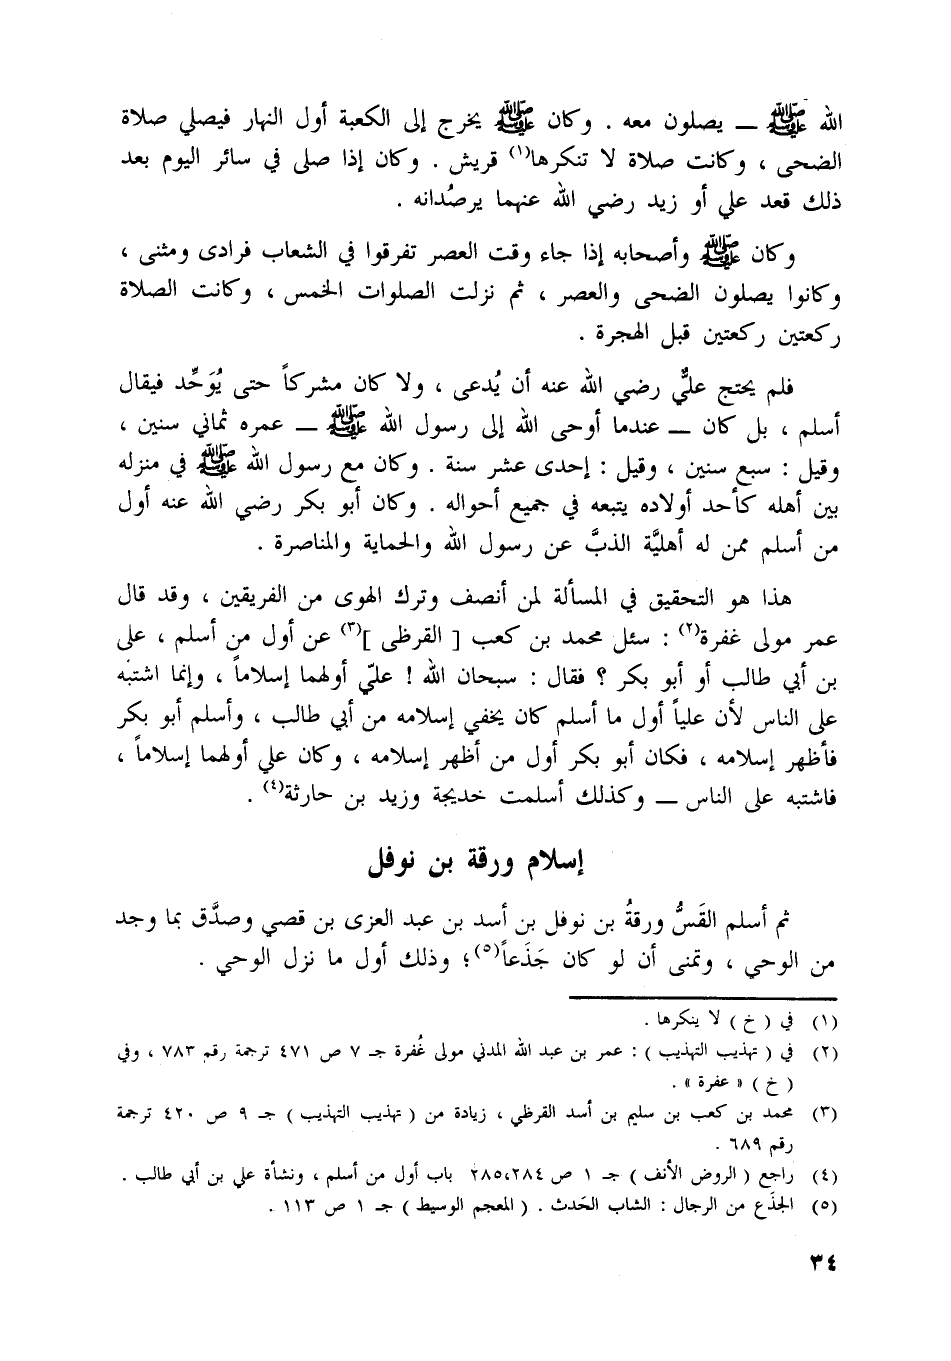 الله ﷺ ــ يصلون معه . وكان ﷺ يخرج إلى الكعبة أول النهار فيصلي صلاة
الضحى ، وكانت صلاة لا تنكرها(١) قريش . وكان إذا صلى في سائر اليوم بعد
ذلك قعد علي أو زيد رضي الله عنهما يرصُدانه .
وكان ﷺ وأصحابه إذا جاء وقت العصر تفرقوا في الشعاب فرادى ومثنى ،
وكانوا يصلون الضحى والعصر ، ثم نزلت الصلوات الخمس ، وكانت الصلاة
ركعتين ركعتين قبل الهجرة .
فلم يحتج عليٌّ رضي الله عنه أن يُدعى ، ولا كان مشركاً حتى يُوَحِّد فيقال
أسلم ، بل كان ــ عندما أوحى الله إلى رسول الله ﷺ ــ عمره ثماني سنين ،
وقيل : سبع سنين ، وقيل : إحدى عشر سنة . وكان مع رسول الله ﷺ في منزله
بين أهله كأحد أولاده يتبعه في جميع أحواله . وكان أبو بكر رضي الله عنه أول
من أسلم ممن له أهليَّة الذبَّ عن رسول الله والحماية والمناصرة .
هذا هو التحقيق في المسألة لمن أنصف وترك الهوى من الفريقين ، وقد قال
عمر مولى غفرة(٢) : سئل محمد بن كعب [ القرظي ](٣) عن أول من أسلم ، على
بن أبي طالب أو أبو بكر ؟ فقال : سبحان الله ! عليّ أولهما إسلاماً ، وإنما اشتبه
على الناس لأن علياً أول ما أسلم كان يخفي إسلامه من أبي طالب ، وأسلم أبو بكر
فأظهر إسلامه ، فكان أبو بكر أول من أظهر إسلامه ، وكان علي أولهما إسلاماً ،
فاشتبه على الناس ــ وكذلك أسلمت خديجة وزيد بن حارثة(٤) .
إسلام ورقة بن نوفل
ثم أسلم القَسُّ ورقةُ بن نوفل بن أسد بن عبد العزى بن قصي وصدَّق بما وجد
من الوحي ، وتمنى أن لو كان جَذَعاً(٥)؛ وذلك أول ما نزل الوحي .
(١) في ( خ ) لا ينكرها .
(٢) في ( تهذيب التهذيب ) : عمر بن عبد الله المدني مولى غُفرة جـ ٧ ص ٤٧١ ترجمة رقم ٧٨٣ ، وفي
( خ ) « عفرة » .
(٣) محمد بن كعب بن سليم بن أسد القرظي ، زيادة من ( تهذيب التهذيب ) جـ ٩ ص ٤٢٠ ترجمة
رقم ٦٨٩ .
(٤) راجع ( الروض الأنف ) جـ ١ ص ٢٨٥،٢٨٤ باب أول من أسلم ، ونشأة علي بن أبي طالب .
(٥) الجذَع من الرجال : الشاب الحَدث . ( المعجم الوسيط ) جـ ١ ص ١١٣ .
٣٤